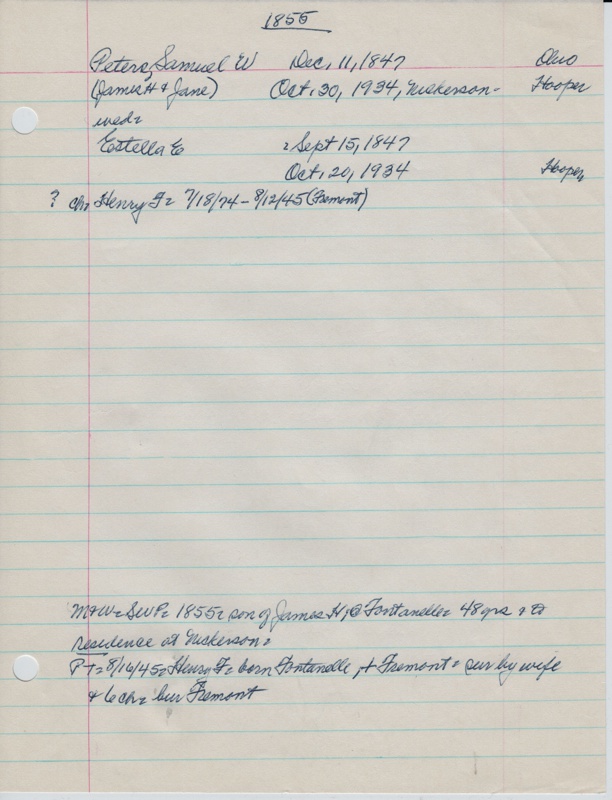 1855
Peters, Samuel W Dec, 11, 1847 Ohio
(James H & Jane) Oct, 30, 1934, Nickerson- Hooper
wed=
Estella E = Sept 15, 1847
Oct, 20, 1934 Hooper
? ch= Henry F= 7/18/74 - 8/12/45 (Fremont)
M+W= SWP= 1855= son of James H, @ Fontanelle= 48 yrs + to
residence at Nickerson=
PT= 8/16/45= Henry F= born Fontanelle, + Fremont= sur by wife
& 6 ch= bur Fremont